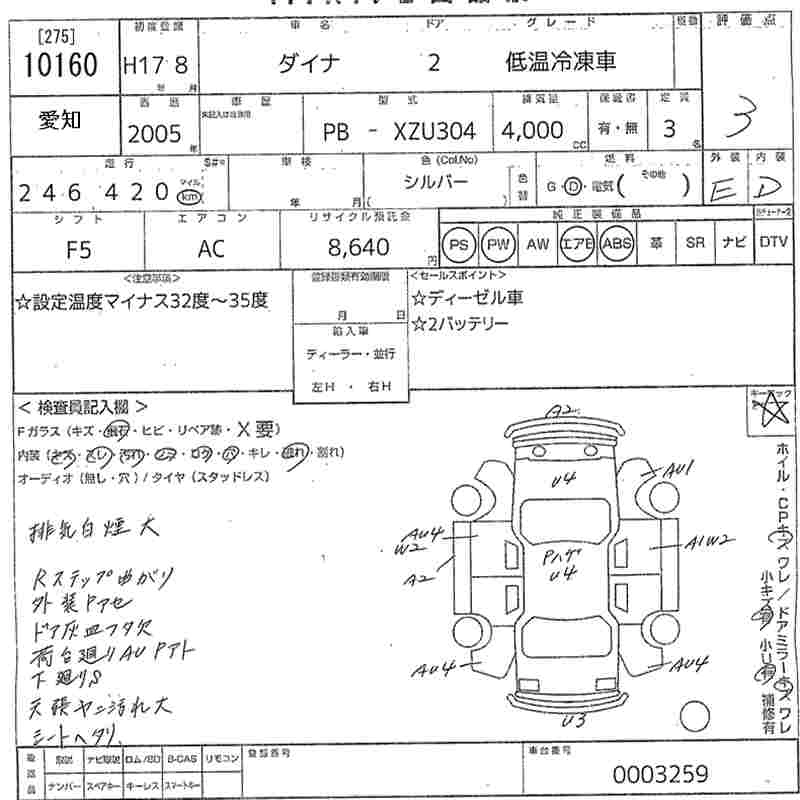 [275]
10160
初度登録
H17 8
年 月
車名 ドア グレード
ダイナ 2 低温冷凍車
評価点
3
愛知
2005
年
車歴
型式
PB - XZU304
排気量
4,000
CC
保証書
有・無
定員
3
名
走行
246 420
マイル
km
車検
年 月
色(Col.No)
シルバー
( )
色替
燃料
G・D・電気( その他 )
外装
E
内装
D
シフト
F5
エアコン
AC
リサイクル預託金
8,640
円
純正装備品
PS PW AW エアB ABS 革 SR ナビ DTV
<注意事項>
☆設定温度マイナス32度~35度
登録書類有効期限
月 日
輸入車
ディーラー・並行
左H ・ 右H
<セールスポイント>
☆ディーゼル車
☆2バッテリー
<検査員記入欄>
Fガラス(キズ・飛石・ヒビ・リペア跡・X要)
オーディオ(無し・穴)/タイヤ(スタッドレス)
排気白煙大
Rステップ曲がり
外装Pアセ
ドア灰皿フタ欠
荷台廻りAU Pアト
下廻りS
天張ヤニ汚れ大
シートヘタリ
A2
U4
AU1
AU4
W2
A2
Pハゲ
U4
A1W2
AU4
AU4
U3
ホイル・CPキズワレ/ドアミラーキズワレ
小キズ有 小U有 補修有
取説 ナビ取説 ロム/SD B-CAS リモコン
ナンバー スペアキー キーレス スマートキー
登録番号
車台番号
0003259